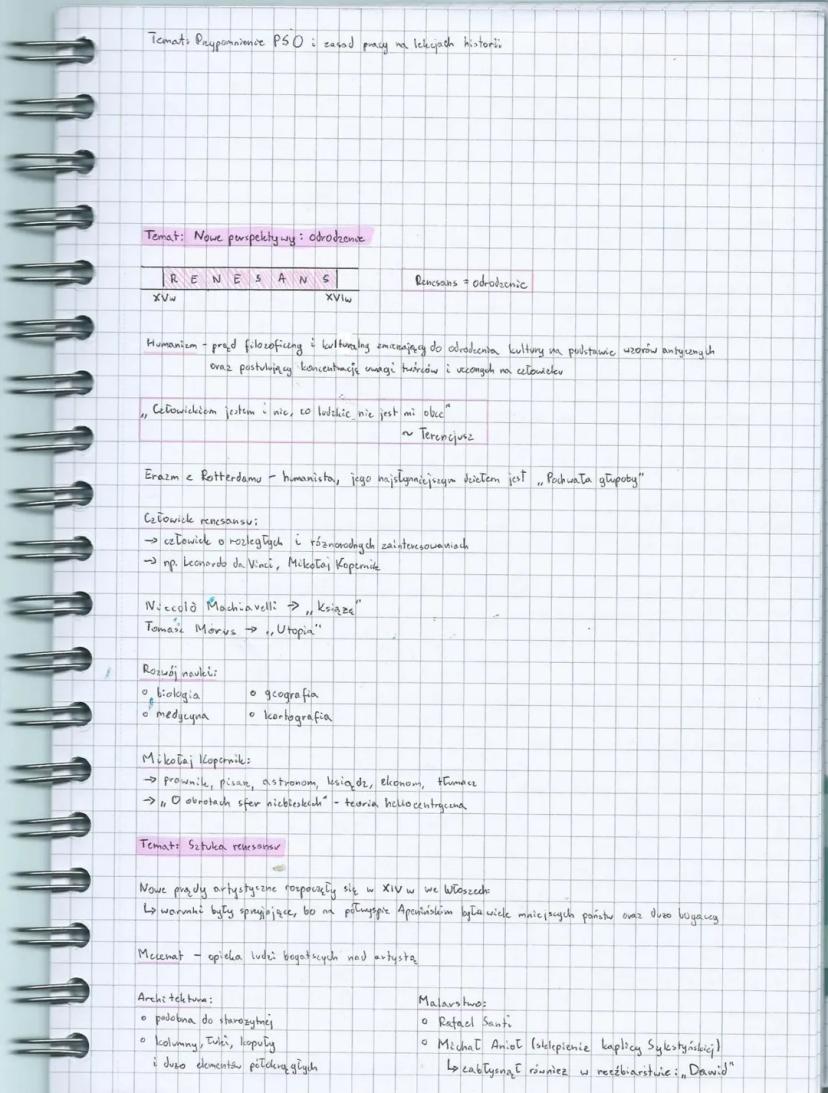 Temat: Przypomnienie PSO i zasad pracy na lekcjach historii
Temat: Nowe perspektywy: odrodzenie
RENESANS
XVw XVIw
Renesans = odrodzenie
Humanizm - prąd filozoficzny i kulturalny zmierzający do odrodzenia kultury na podstawie wzorów antycznych
oraz postulujący koncentrację uwagi twórców i uczonych na człowieku
„Człowiekiem jestem i nic, co ludzkie nie jest mi obce"
~ Terencjusz
Erazm z Rotterdamu - humanista, jego najsłynniejszym dziełem jest „Pochwała głupoty"
Człowiek renesansu:
→ człowiek o rozległych i różnorodnych zainteresowaniach
→ np. Leonardo da Vinci, Mikołaj Kopernik
Niccolò Machiavelli → „Książę"
Tomasz Morus → „Utopia"
Rozwój nauki:
o biologia o geografia
o medycyna o kartografia
Mikołaj Kopernik:
→ prawnik, pisarz, astronom, ksiądz, ekonom, tłumacz
→ „O obrotach sfer niebieskich" - teoria heliocentryczna
Temat: Sztuka renesansu
Nowe prądy artystyczne rozpoczęły się w XIV w we Włoszech:
↳ warunki były sprzyjające, bo na półwyspie Apenińskim było wiele mniejszych państw oraz dużo bogaczy
Mecenat - opieka ludzi bogatszych nad artystą
Architektura:
o podobna do starożytnej
o kolumny, łuki, kopuły
i dużo elementów półokrągłych
Malarstwo:
o Rafael Santi
o Michał Anioł (sklepienie kaplicy Sykstyńskiej)
↳ zabłysnął również w rzeźbiarstwie: „Dawid"